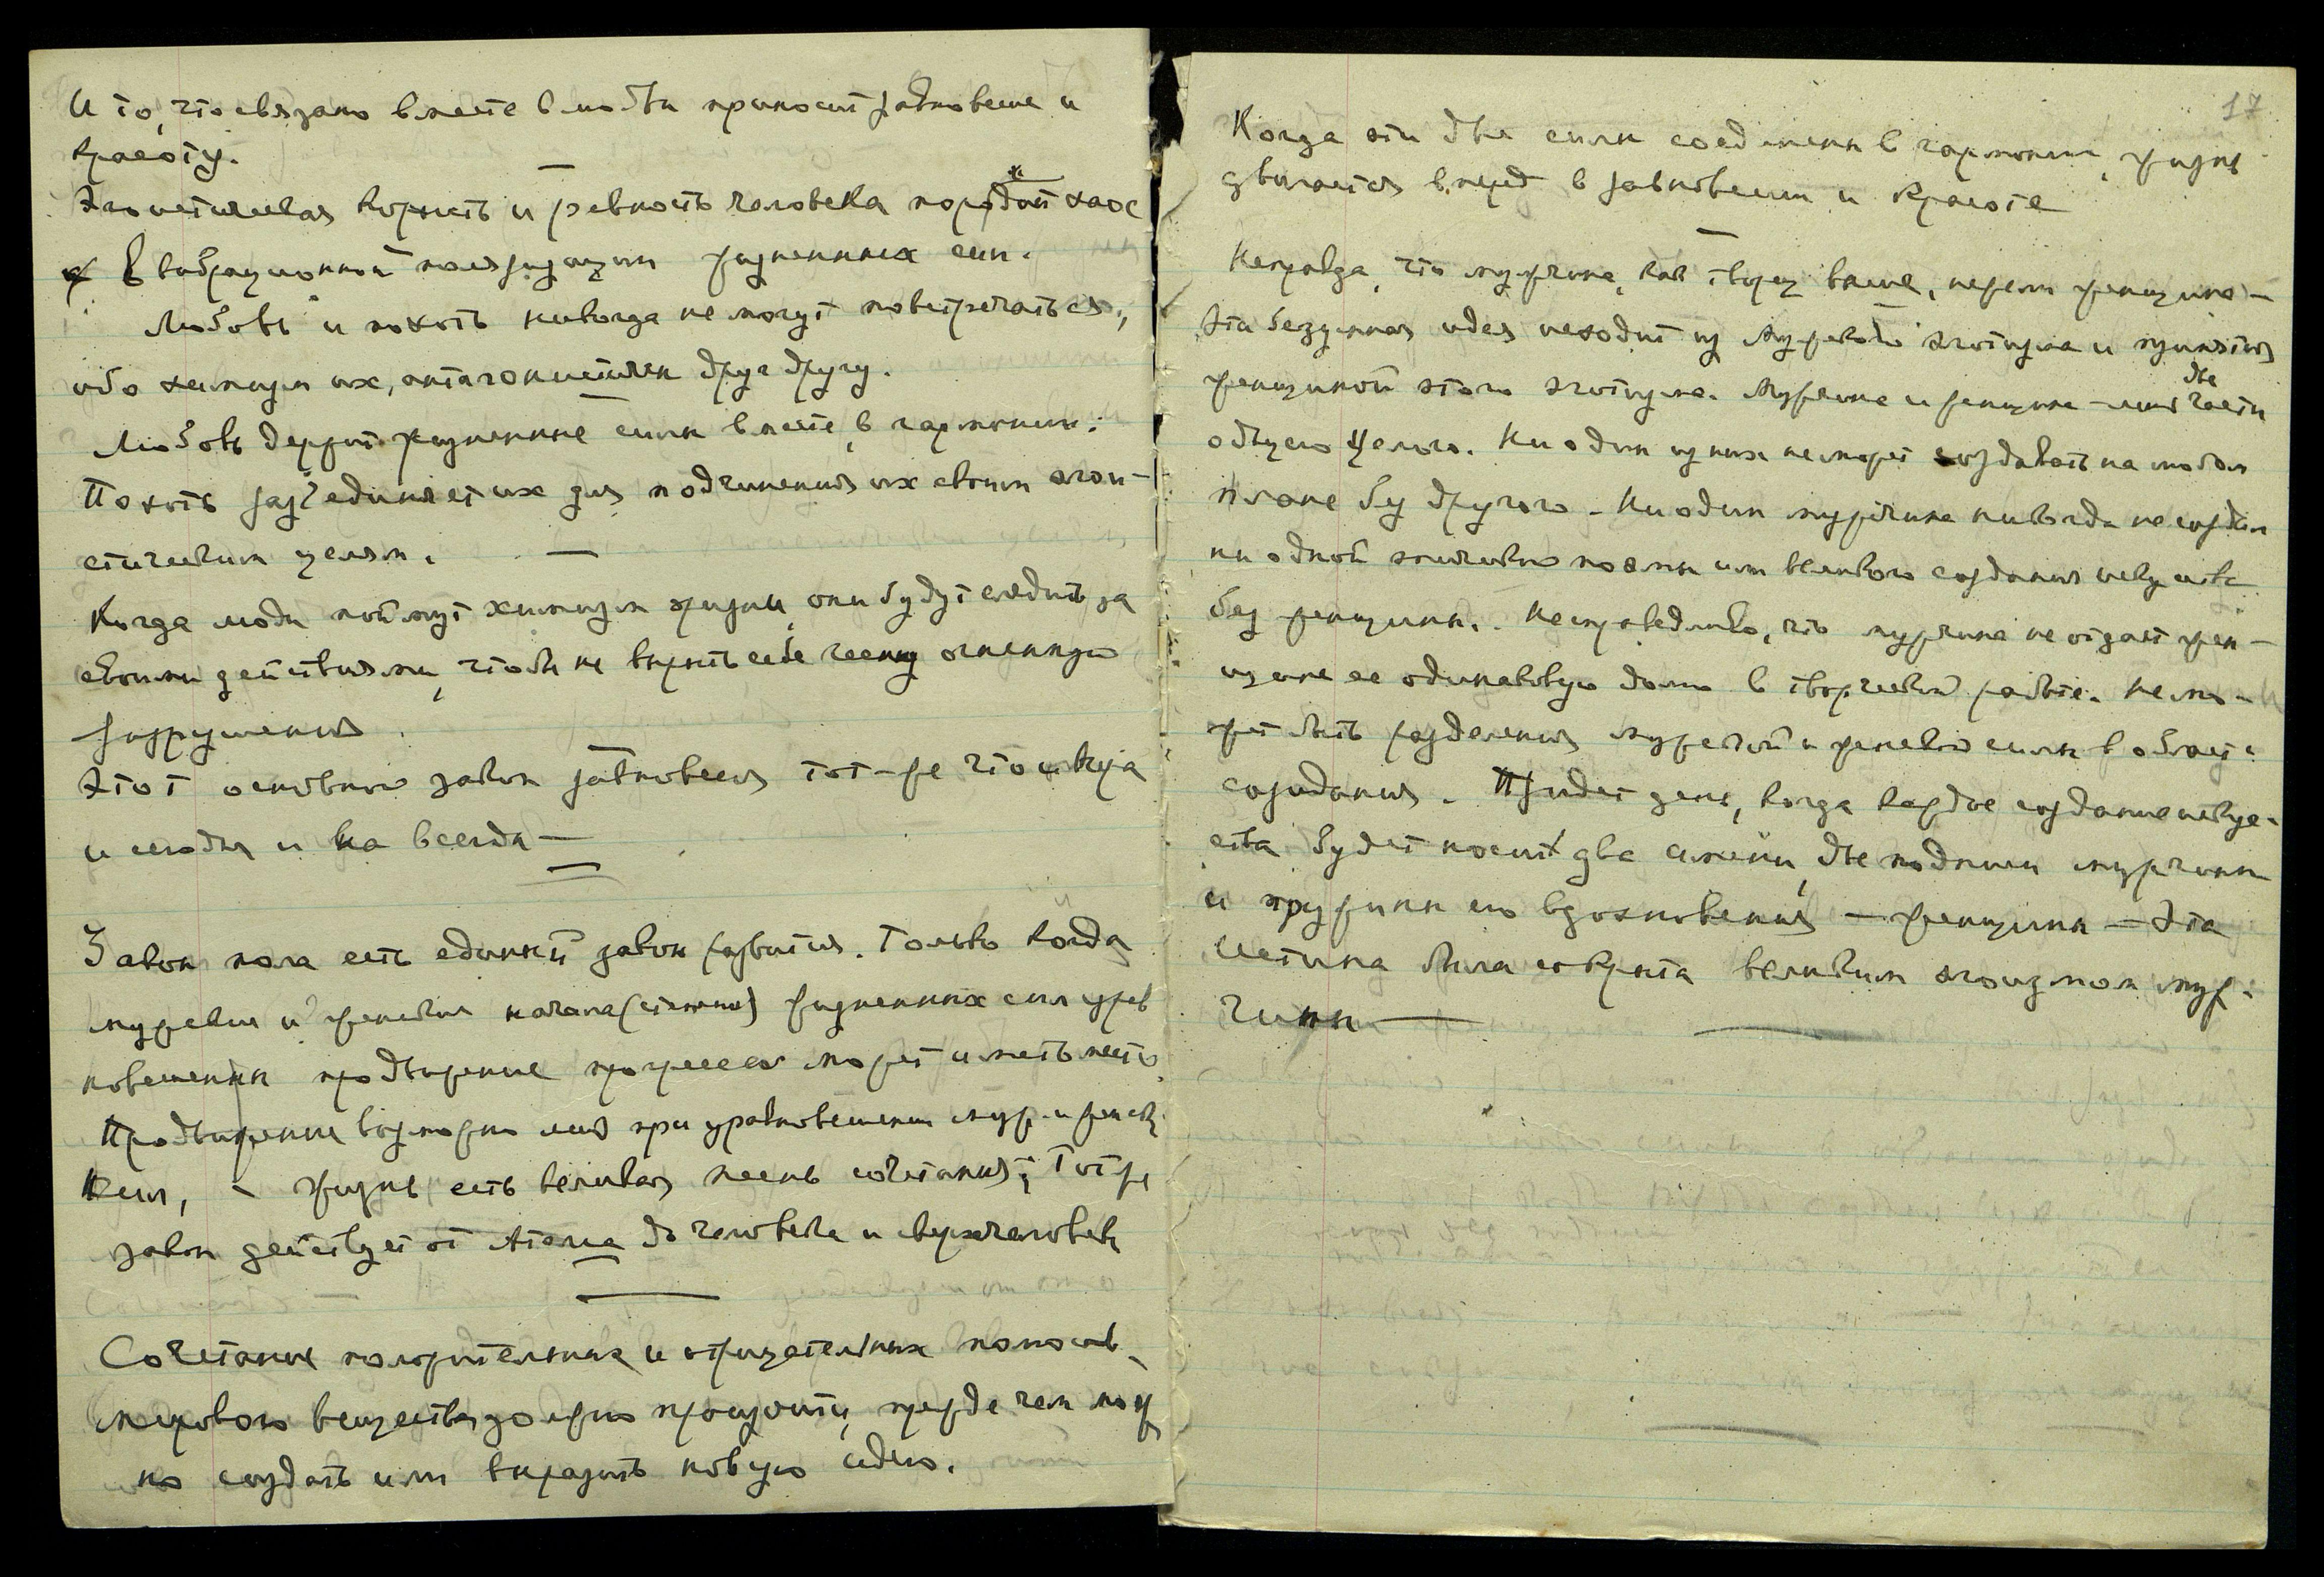 И то, что связано вместе в любви приносит равновесие и
красоту.
Эгоистическая корысть и ревность человека породит хаос
в вибрационной поляризации жизненных сил.
Любовь и похоть никогда не могут повстречаться,
ибо химизм их, антагонистичен друг другу.
Любовь держит жизненные силы вместе, в гармонии.
Похоть разъединяет их для подчинения их своим эгои-
стическим целям.
Когда люди поймут химизм жизни, они будут следить за
своими действиями, чтобы не вырыть себе огненную
разрушения.
Этот основной закон равновесия тот-же что и вчера
и сегодня и на всегда —
Закон пола есть единый закон развития. Только когда
мужские и женские начала (стихии) жизненных сил урав
новешены продвижение прогресса может иметь место.
Продвижение возможно лишь при уравновешении муж. и женск.
сил, - жизнь есть великая песнь сочетания; Тот же
закон действует от Атома до человека и сверхчеловека
Сочетание положительных и отрицательных полюсов
мирового вещества должно произойти, прежде чем мож
но создать или выразить новую идею.
17
Когда эти две силы соединены в гармонии, жизнь
двигается вперед в равновесии и красоте
Неправда, что мужчина, как творец выше, нежели женщина —
Эта безумная идея исходит из мужского эготизма и принятия
женщиной этого эготизма. Мужчина и женщина — лишь две части
общего целого. Ни один из них не может создавать на любом
плане без другого. Ни один мужчина никогда не создал
ни одной эпической поэмы или великого создания искусства
без женщины. Несправедливо, что мужчина не отдает жен-
щине ее одинаковую долю в творческой работе. Не мо-
жет быть разделения мужской и женской силы в области
созидания. Придет день, когда каждое создание искус-
ства будет носить два имени, две подписи мужчины
и пружины его вдохновения — женщины — Эта
Истина была сокрыта великим эгоизмом муж-
чины —